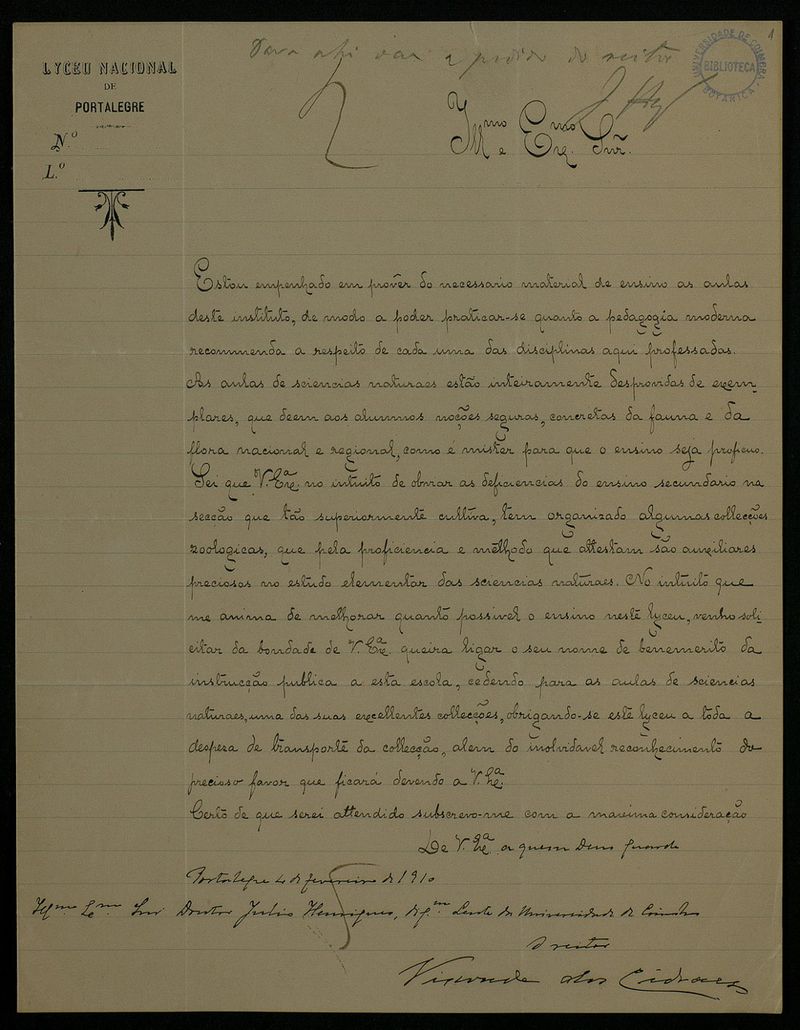 1
UNIVERSIDADE DE COIMBRA
BIBLIOTECA
BOTANICA
LYCEU NACIONAL
DE
PORTALEGRE
N.º
L.º
a pedido do reitor
Ill.mo Ex.mo Snr.
Estou empenhado em prover do necessario material de ensino as aulas
deste instituto, de modo a poder praticar-se quanto a pedagogia moderna
recommenda a respeito de cada uma das disciplinas aqui professadas.
As aulas de sciencias naturaes estão inteiramente desprovidas de exem
plares, que deem aos alumnos noções seguras, concretas da fauna e da
flora nacional e regional, como é mister para que o ensino seja proficuo.
Sei que V. Ex.ª no intuito de obviar as deficiencias do ensino secundario na
secção que tão superiormente cultiva, tem organizado algumas collecções
zoologicas, que pela proficiencia e methodo que attestam são auxiliares
preciosos no estudo elementar das sciencias naturaes. No intuito que
me anima de melhorar quanto possivel o ensino neste lyceu, venho soli
citar da bondade de V. Ex.ª queira ligar o seu nome de benemerito da
instrucção publica a esta escola, cedendo para as aulas de sciencias
naturaes, uma das suas excellentes collecções, obrigando-se este lyceu a toda a
despeza de transporte da collecção, alem do inolvidavel reconhecimento do
precioso favor que ficará devendo a V. Ex.ª
Certo de que serei attendido subscrevo-me com a maxima consideração
De V. Ex.ª a quem Deus guarde
Portalegre 4 de fevereiro de 1910
Snr Doutor Julio Henriques, Dig.mo Lente da Universidade de Coimbra
O reitor
Visconde dos Cidraes